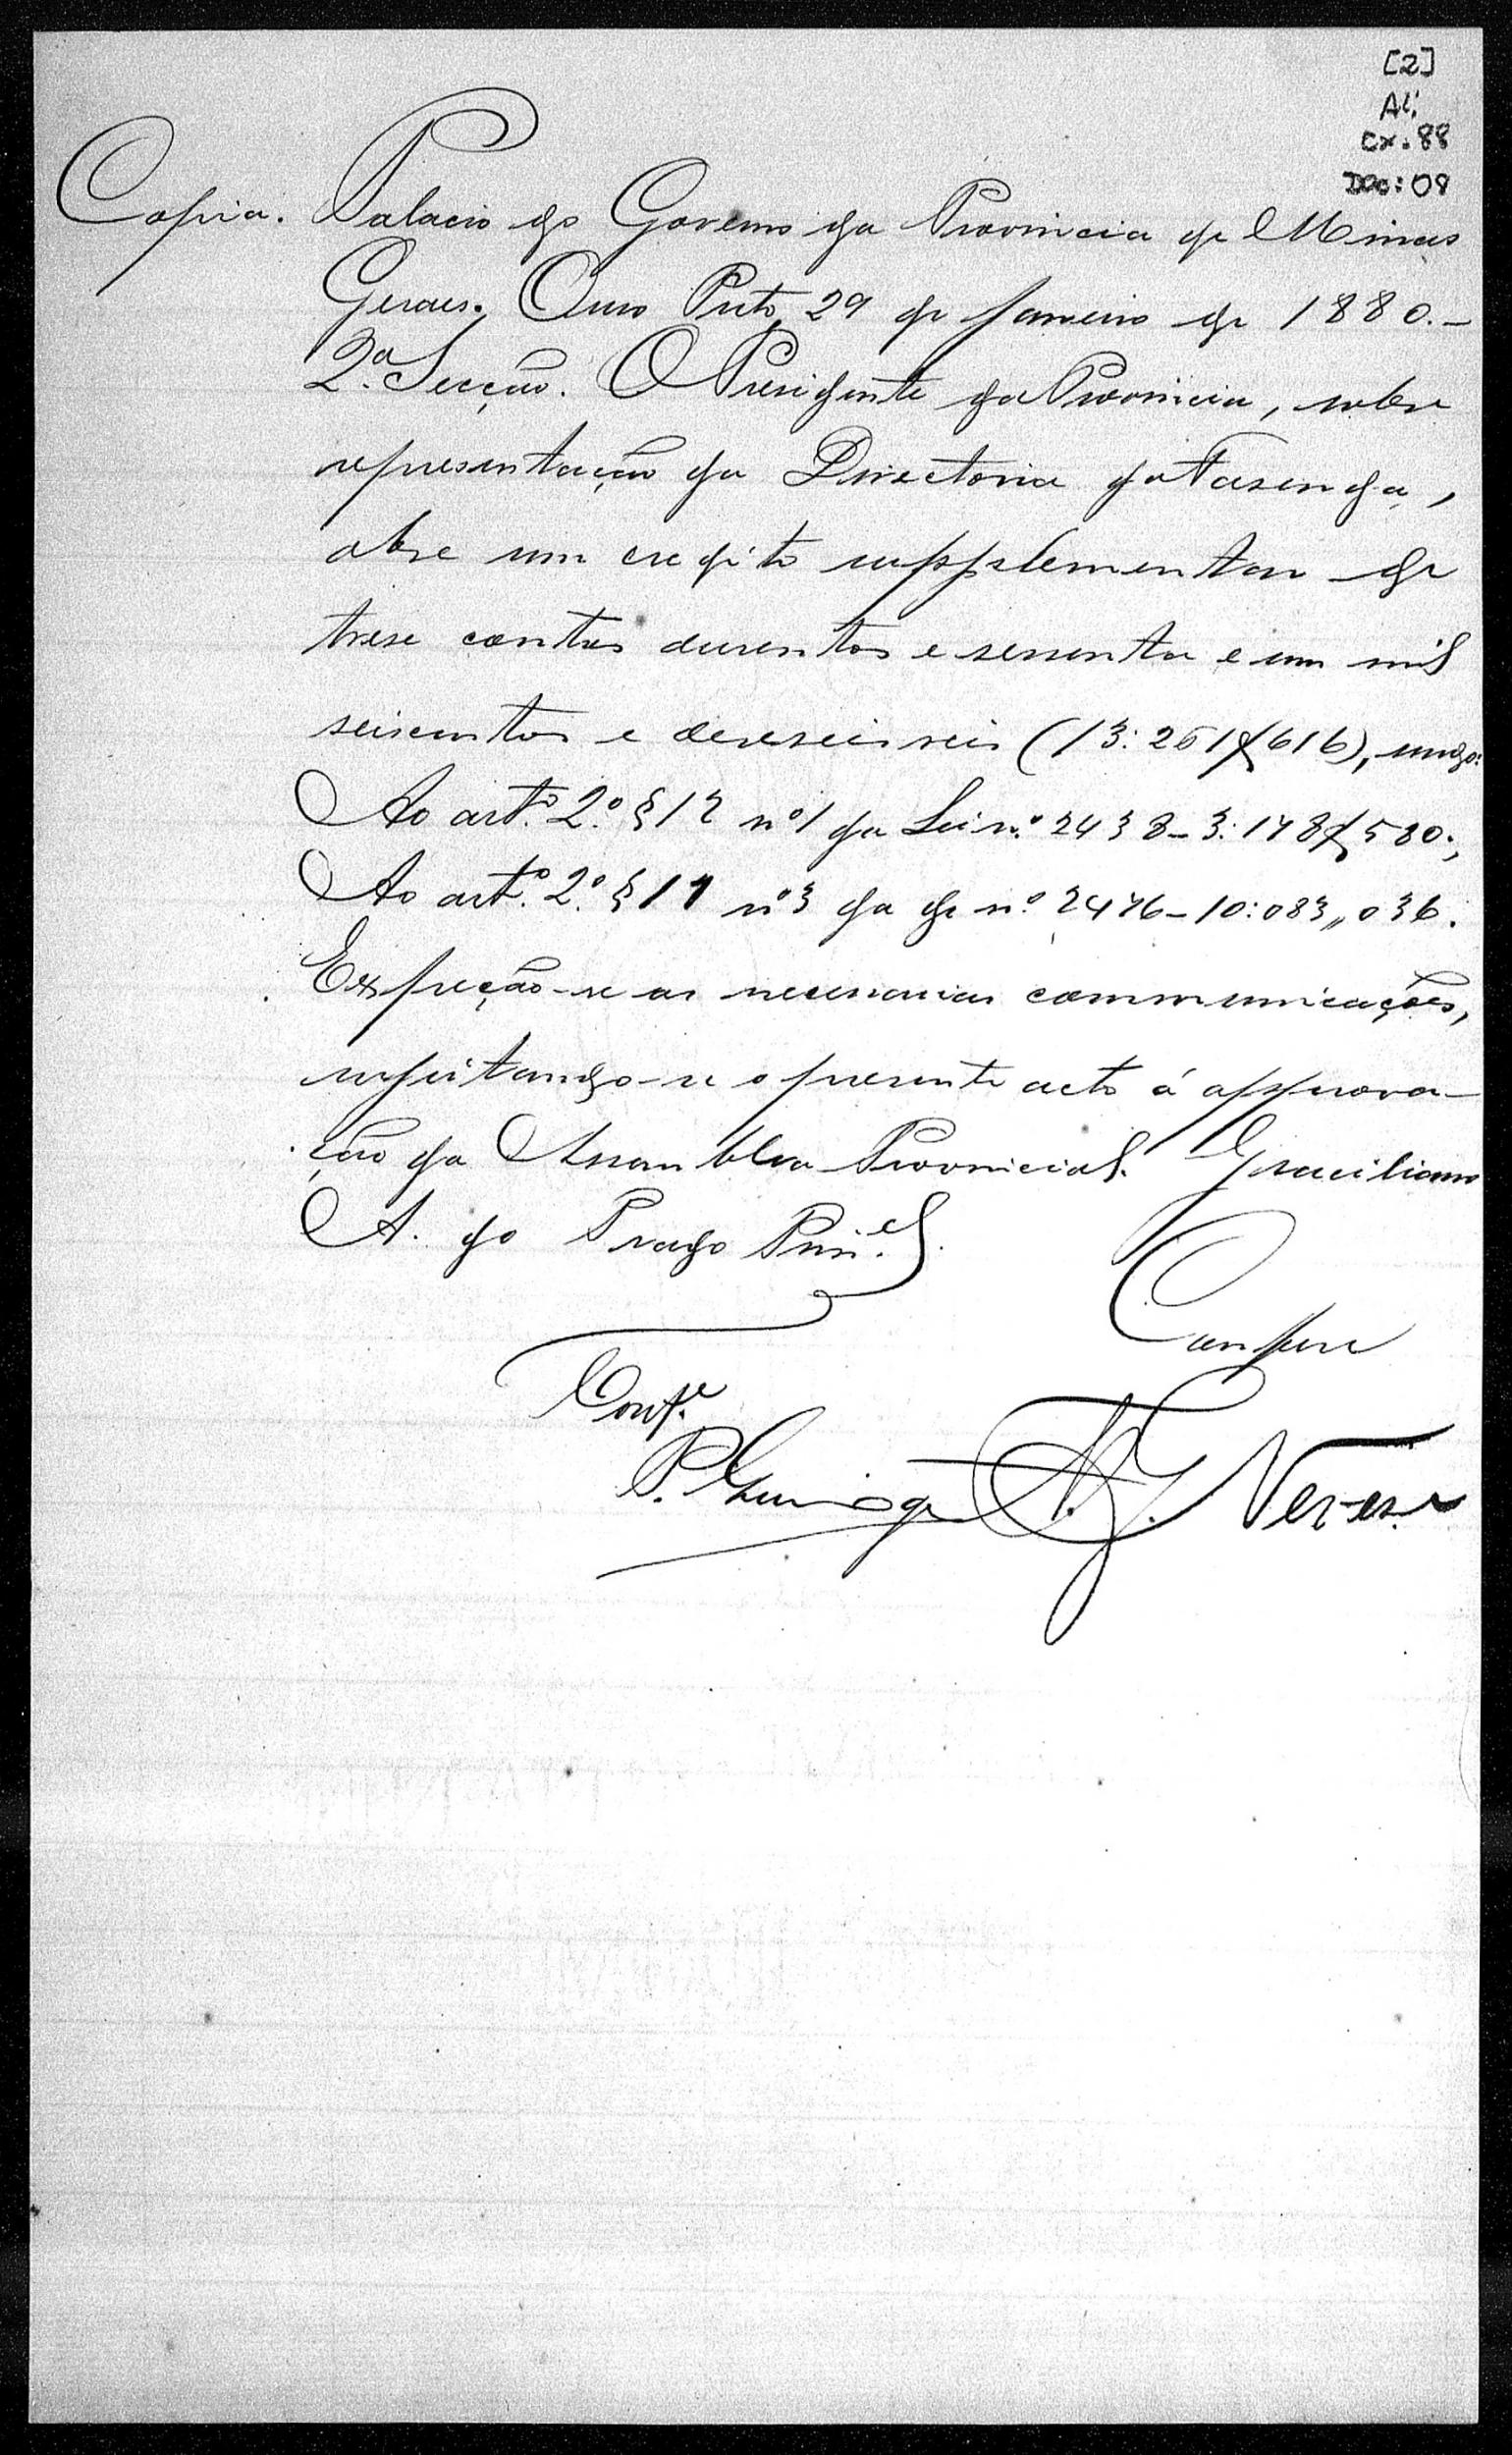 [2]
AL:
CX: 88
DOC: 08
Copia. Palacio do Governo da Provincia de Minas
Geraes. Ouro Preto, 29 de Janeiro de 1880.—
2ª Secção. O Presidente da Provincia, sobre
representação da Directoria da Fasenda,
abre um credito supplementar de
trese contos dusentos e sessenta e um mil
seiscentos e deseseis reis (13:261$616), sendo:
Ao artº. 2º. § 12 nº 1 da Lei nº. 2438—3:178$580;
Ao artº. 2º. § 11 nº 3 da de nº. 2476—10:083,,036.
Expeção-se as necessarias communicações,
sujeitando-se o presente acto á approva-
ção da Assemblea Provincial. Graciliano
A. do Prado Pim.el
Confere
Conf.e
A. J. Neves